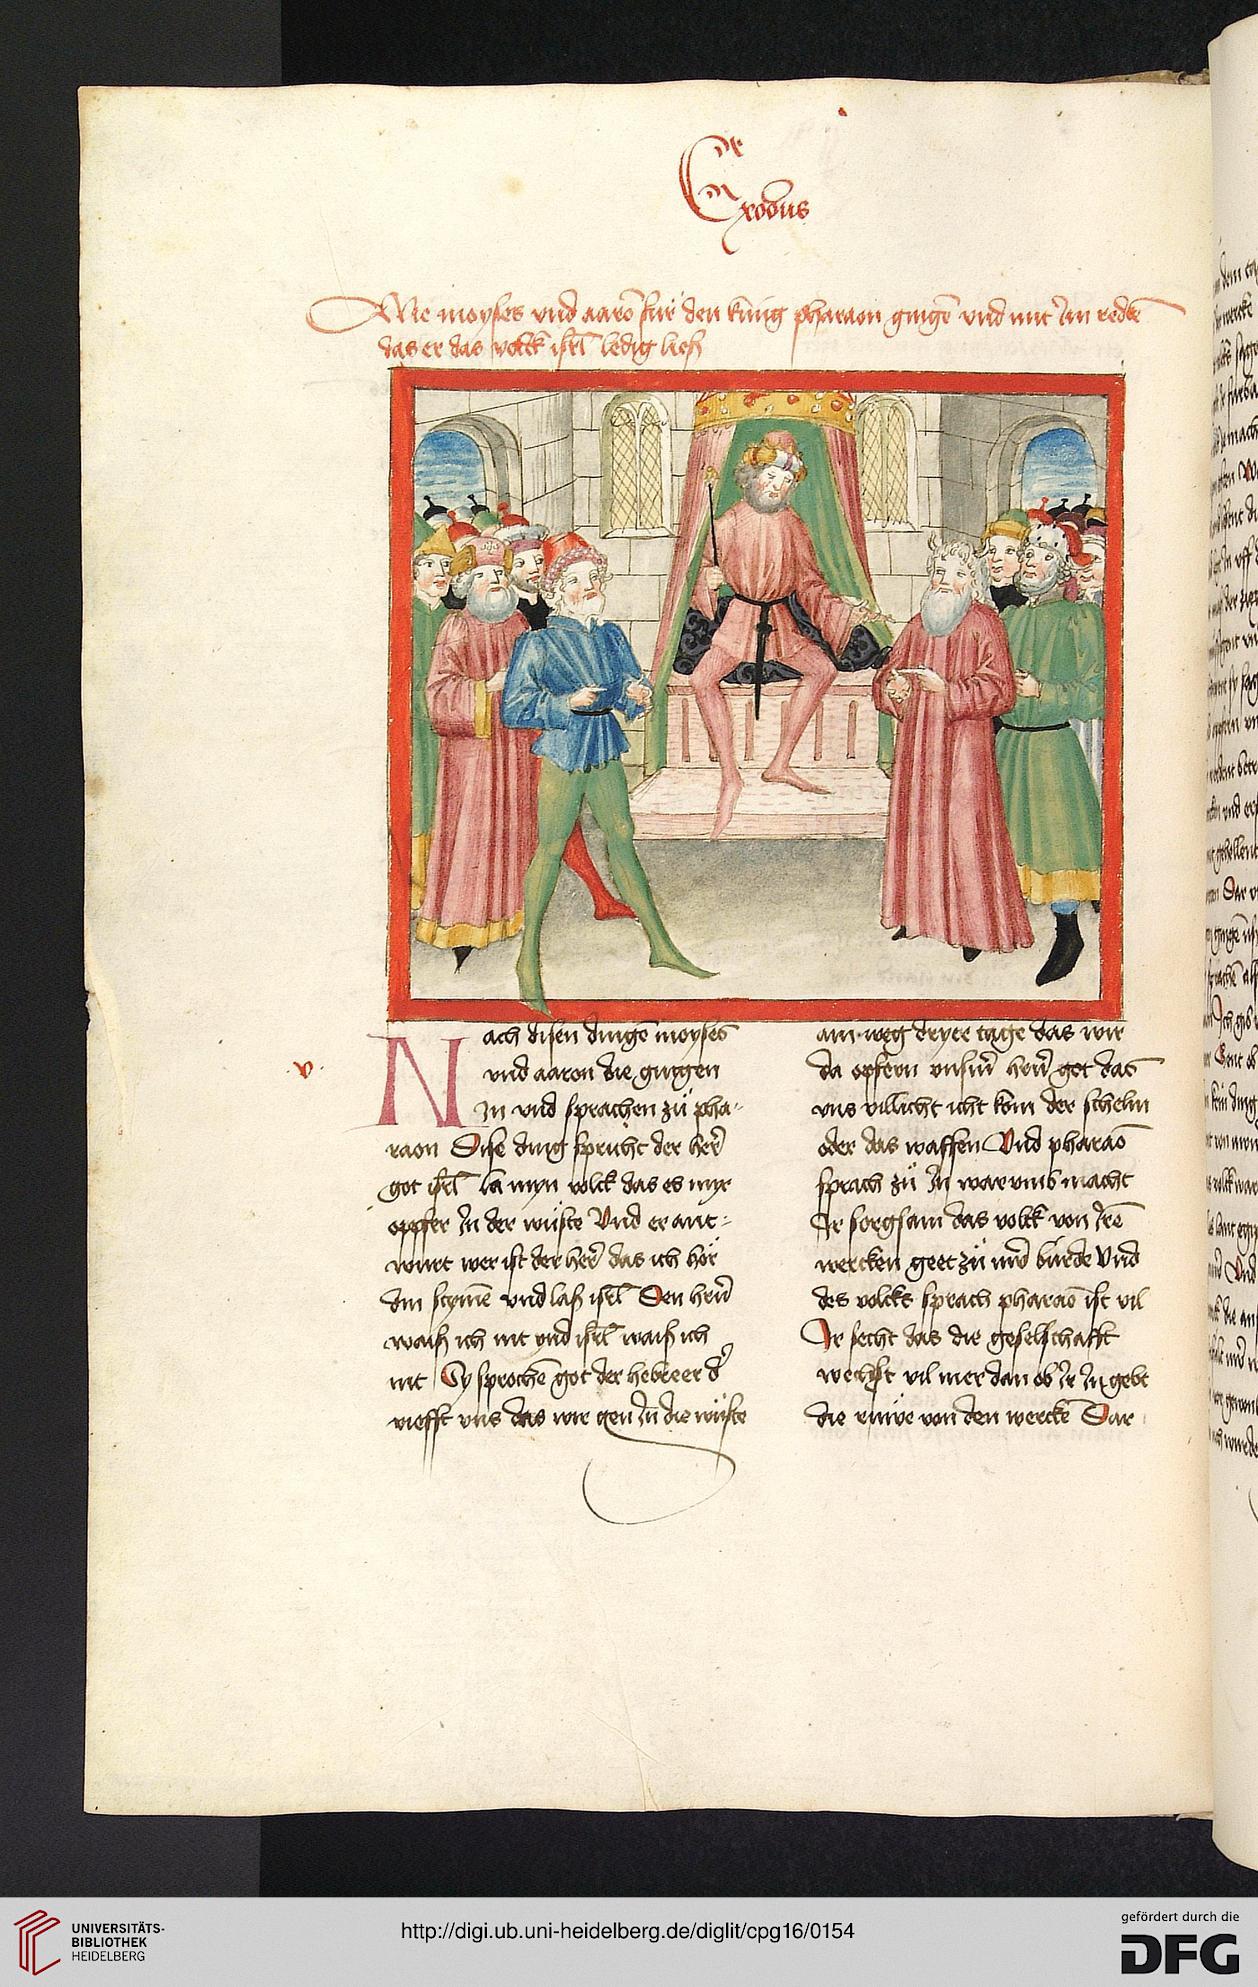 Exodus
Wie moyses vnd aarō für den küng pharaon gingē vnd mit Im redtē
das er das volck isrl̄ ledig ließ
v
Nach disen dingē moyses
vnd aaron die gingen
In vnd sprachen zü pha-
raon Dise ding spricht der her̄
got isrl̄ la myn volck das es mir
opffer In der wüste Vnd er ant-
wurt wer ist der her̄ das ich hör
sin stymē vnd laß isrl̄ Den hern̄
waiß ich nit vnd isrl̄ waiß ich
nit Sy sprochē got der hebreer d'
riefft vns das wir gen In die wüste
ain weg dryer tage das wir
da opfern vnserm̄ hern̄ got das
vns villicht icht kom der schelm
oder das waffen Vnd pharaō
sprach zü In warumb macht
Ir sorgsam das volck von Irē
wercken geet zü uwer bürde Vnd
des volcks sprach pharaō ist vil
Ir secht das die geselschafft
wechst vil mer dan ob Ir In gebt
die ruwe von den werckē Dar
UNIVERSITÄTS-
BIBLIOTHEK
HEIDELBERG
http://digi.ub.uni-heidelberg.de/diglit/cpg16/0154
gefördert durch die
DFG